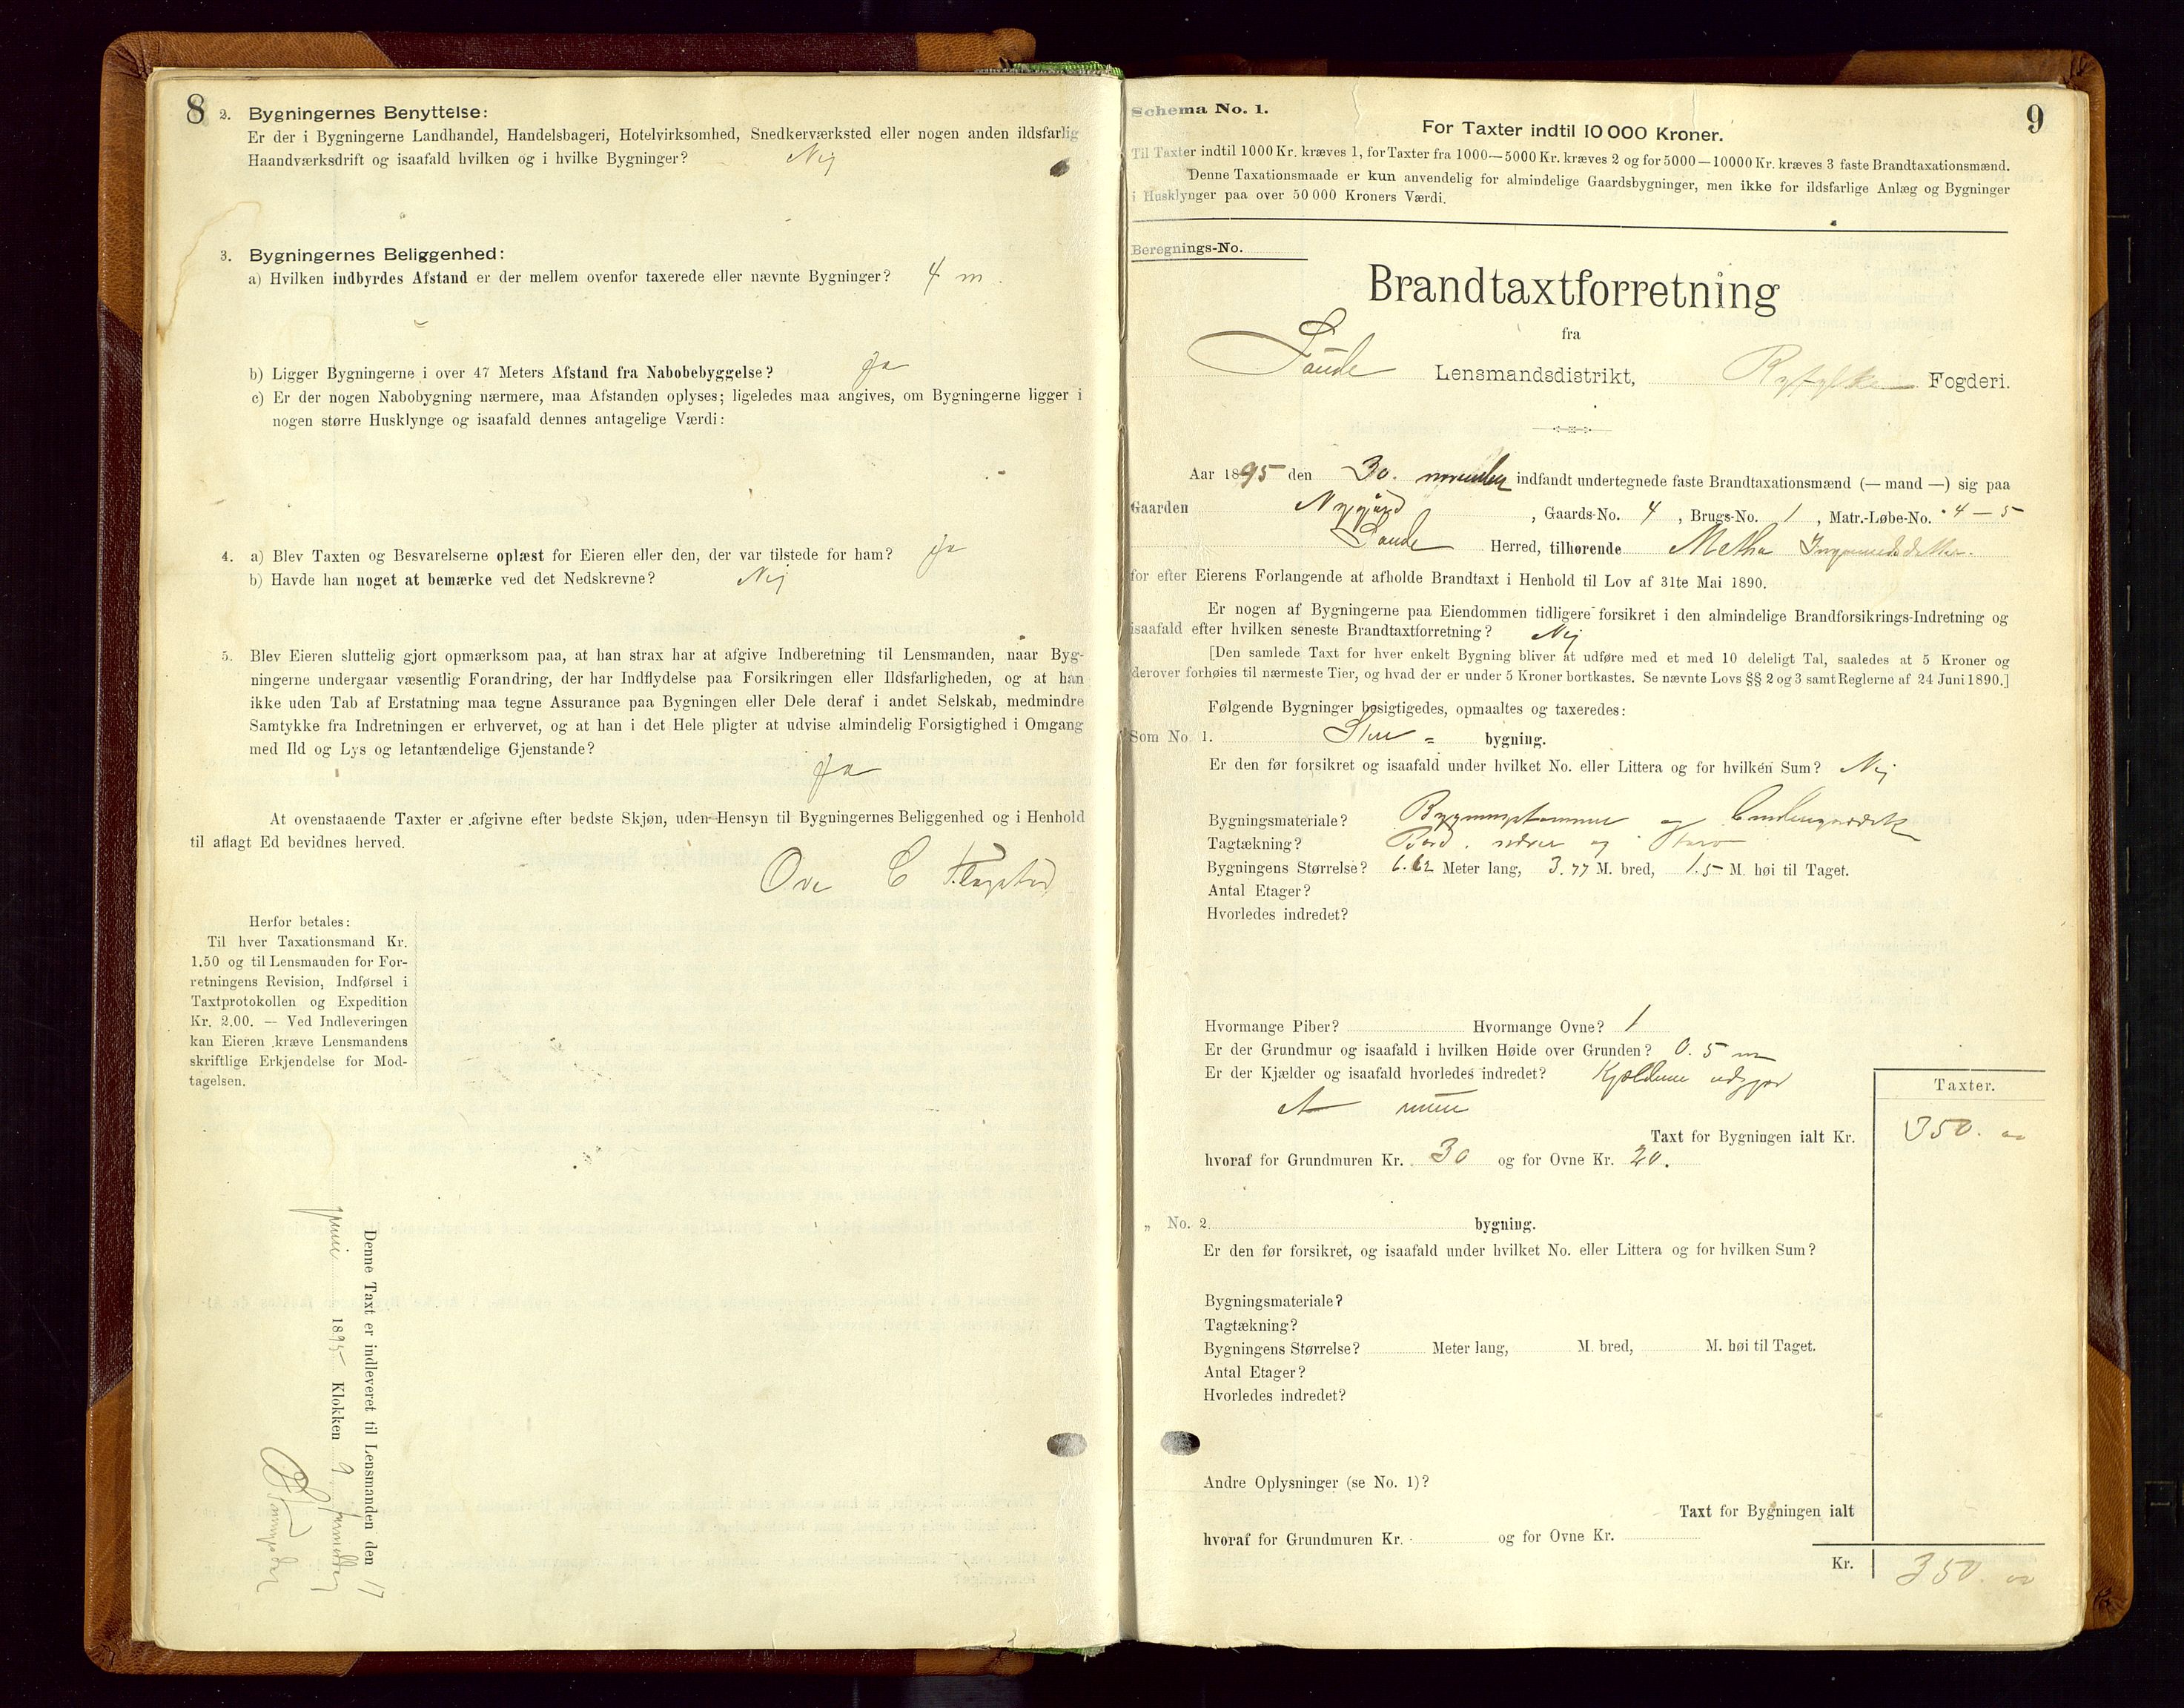 8
2. Bygningernes Benyttelse:
Er der i Bygningerne Landhandel, Handelsbageri, Hotelvirksomhed, Snedkerværksted eller nogen anden ildsfarlig
Haandværksdrift og isaafald hvilken og i hvilke Bygninger? Nej
3. Bygningernes Beliggenhed:
a) Hvilken indbyrdes Afstand er der mellem ovenfor taxerede eller nævnte Bygninger? 4 m.
b) Ligger Bygningerne i over 47 Meters Afstand fra Nabobebyggelse? Ja
c) Er der nogen Nabobygning nærmere, maa Afstanden oplyses; ligeledes maa angives, om Bygningerne ligger i
nogen større Husklynge og isaafald dennes antagelige Værdi:
4. a) Blev Taxten og Besvarelserne oplæst for Eieren eller den, der var tilstede for ham? Ja
b) Havde han noget at bemærke ved det Nedskrevne? Nej
5. Blev Eieren sluttelig gjort opmærksom paa, at han strax har at afgive Indberetning til Lensmanden, naar Byg-
ningerne undergaar væsentlig Forandring, der har Indflydelse paa Forsikringen eller Ildsfarligheden, og at han
ikke uden Tab af Erstatning maa tegne Assurance paa Bygningen eller Dele deraf i andet Selskab, medmindre
Samtykke fra Indretningen er erhvervet, og at han i det Hele pligter at udvise almindelig Forsigtighed i Omgang
med Ild og Lys og letantændelige Gjenstande?
Ja
At ovenstaaende Taxter er afgivne efter bedste Skjøn, uden Hensyn til Bygningernes Beliggenhed og i Henhold
til aflagt Ed bevidnes herved.
Ove C
Herfor betales:
Til hver Taxationsmand Kr.
1.50 og til Lensmanden for For-
retningens Revision, Indførsel i
Taxtprotokollen og Expedition
Kr. 2.00. — Ved Indleveringen
kan Eieren kræve Lensmandens
skriftlige Erkjendelse for Mod-
tagelsen.
Denne Taxt er indleveret til Lensmanden den 17
1895 Klokken 9 formiddag
Schema No. 1.
9
For Taxter indtil 10 000 Kroner.
Til Taxter indtil 1000 Kr. kræves 1, for Taxter fra 1000—5000 Kr. kræves 2 og for 5000—10000 Kr. kræves 3 faste Brandtaxationsmænd.
Denne Taxationsmaade er kun anvendelig for almindelige Gaardsbygninger, men ikke for ildsfarlige Anlæg og Bygninger
i Husklynger paa over 50 000 Kroners Værdi.
Beregnings-No.
Brandtaxtforretning
fra
Saude Lensmandsdistrikt, Ryfylke Fogderi.
Aar 1895 den 30. november indfandt undertegnede faste Brandtaxationsmænd (— mand —) sig paa
Gaarden Nygård, Gaards-No. 4, Brugs-No. 1, Matr.-Løbe-No. 4 — 5
Saude Herred, tilhørende Metha
for efter Eierens Forlangende at afholde Brandtaxt i Henhold til Lov af 31te Mai 1890.
Er nogen af Bygningerne paa Eiendommen tidligere forsikret i den almindelige Brandforsikrings-Indretning og
isaafald efter hvilken seneste Brandtaxtforretning? Nej
[Den samlede Taxt for hver enkelt Bygning bliver at udføre med et med 10 deleligt Tal, saaledes at 5 Kroner og
derover forhøies til nærmeste Tier, og hvad der er under 5 Kroner bortkastes. Se nævnte Lovs §§ 2 og 3 samt Reglerne af 24 Juni 1890.]
Følgende Bygninger besigtigedes, opmaaltes og taxeredes:
Som No. 1. Stue = bygning.
Er den før forsikret og isaafald under hvilket No. eller Littera og for hvilken Sum? Nej
Bygningsmateriale? Bygningstømmer og
Tagtækning? Bord, næver og
Bygningens Størrelse? 6.62 Meter lang, 3.77 M. bred, 1.5 M. høi til Taget.
Antal Etager?
Hvorledes indredet?
Hvormange Piber? Hvormange Ovne? 1
Er der Grundmur og isaafald i hvilken Høide over Grunden? 0.5 m
Er der Kjælder og isaafald hvorledes indredet? Kjælderen udgjør
Taxter.
Taxt for Bygningen ialt Kr. 350. 00
hvoraf for Grundmuren Kr. 30 og for Ovne Kr. 20.
„ No. 2 bygning.
Er den før forsikret, og isaafald under hvilket No. eller Littera og for hvilken Sum?
Bygningsmateriale?
Tagtækning?
Bygningens Størrelse? Meter lang, M. bred, M. høi til Taget.
Antal Etager?
Hvorledes indredet?
Andre Oplysninger (se No. 1)?
Taxt for Bygningen ialt
hvoraf for Grundmuren Kr. og for Ovne Kr.
Kr. 350. 00